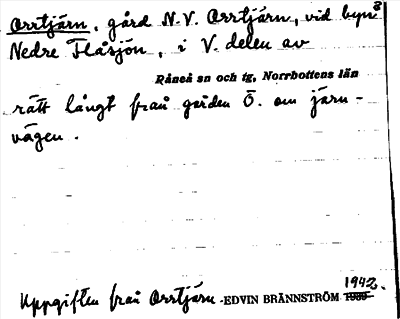 Orrtjärn, gård N.V. Orrtjärn, vid byn
Nedre Flåsjön, i V. delen av
Råneå sn och tg, Norrbottens län
rätt långt från gården Ö. om järn-
vägen.
1942.
Uppgiften från Orrtjärn. EDVIN BRÄNNSTRÖM 1939